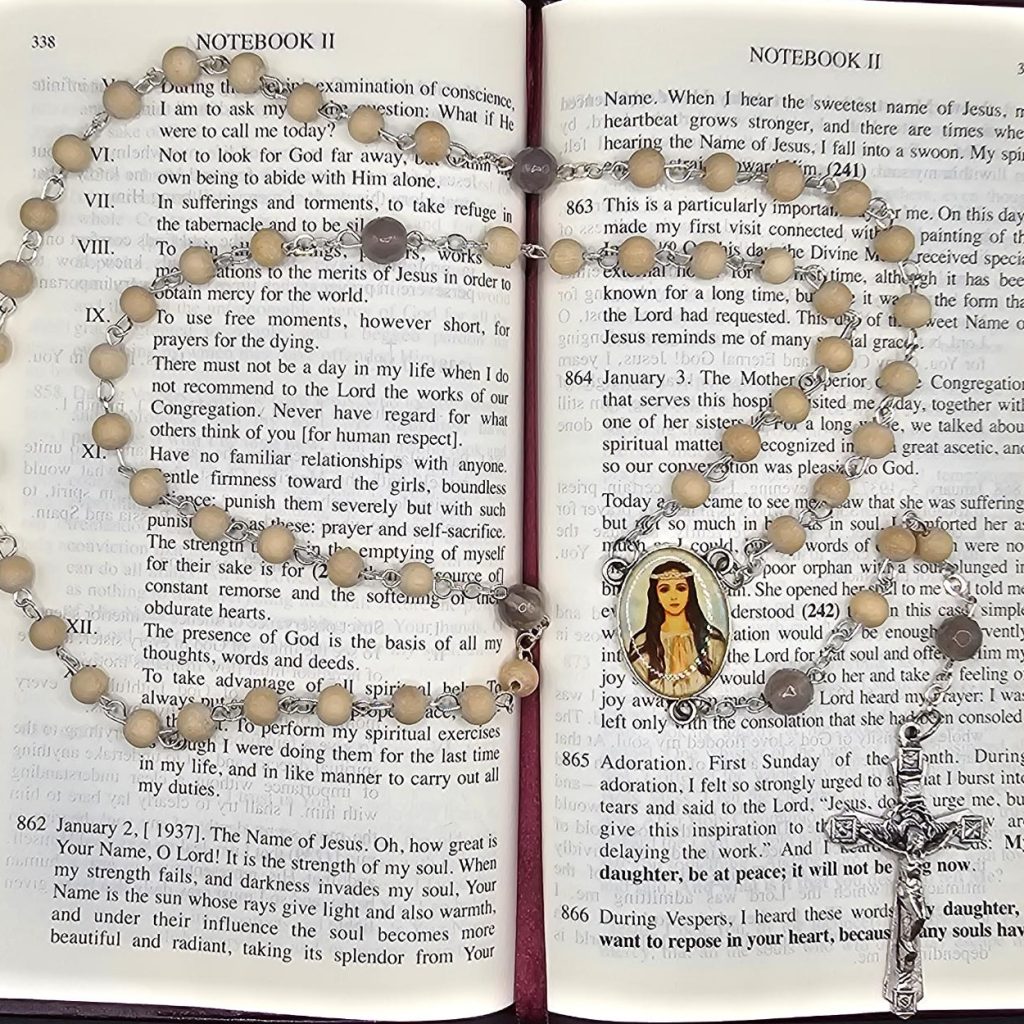 338
NOTEBOOK II
During the examination of conscience,
I am to ask my question: What if He
were to call me today?
VI. Not to look for God far away, but within
own being to abide with Him alone.
VII. In sufferings and torments, to take refuge in
the tabernacle and to be
VIII. To works
to the merits of Jesus in order to
obtain mercy for the world.
IX. To use free moments, however short, for
prayers for the dying.
There must not be a day in my life when I do
not recommend to the Lord the works of our
Congregation. Never have regard for what
others think of you [for human respect].
XI. Have no familiar relationships with anyone.
Gentle firmness toward the girls, boundless
patience; punish them severely but with such
as these: prayer and self-sacrifice.
The strength in the emptying of myself
for their sake is for source of
constant remorse and the softening of the
obdurate hearts.
XII. The presence of God is the basis of all my
thoughts, words and deeds.
To take advantage of all spiritual help. To
always put
To perform my spiritual exercises
as though I were doing them for the last time
in my life, and in like manner to carry out all
my duties.
862 January 2, [ 1937]. The Name of Jesus. Oh, how great is
Your Name, O Lord! It is the strength of my soul. When
my strength fails, and darkness invades my soul, Your
Name is the sun whose rays give light and also warmth,
and under their influence the soul becomes more
beautiful and radiant, taking its splendor from Your
NOTEBOOK II
Name. When I hear the sweetest name of Jesus,
heartbeat grows stronger, and there are times
hearing the Name of Jesus, I fall into a swoon. My
toward Him. (241)
863 This is a particularly important for me. On this day
made my first visit connected with painting of
this day the Divine received
external for time, although it has been
known for a long time, but it was the form
the Lord had requested. This day of the Sweet Name
Jesus reminds me of many special graces.
864 January 3. The Mother Superior Congregation
that serves this hospital visited me today, together with
one of her sisters. For a long we talked about
spiritual matters. recognized in great ascetic, and
so our conversation was pleasing to God.
Today a came to see me. I saw that she was suffering
but not so much in as in soul. I comforted her as
much I could, words of were
poor orphan with a soul plunged in
She opened her soul to me told me
understood (242) in this case, simple
would be enough.
the Lord for that soul and offered Him my
joy would to her and take feeling of
joy Lord heard my prayer: I was
left only with the consolation that she had been consoled.
865 Adoration. First Sunday of the month. During
adoration, I felt so strongly urged to that I burst into
tears and said to the Lord, "Jesus, do urge me, but
give this inspiration to
delaying the work." And I heard My
daughter, be at peace; it will not be long now.
866 During Vespers, I heard these words: My daughter,
want to repose in your heart, because many souls